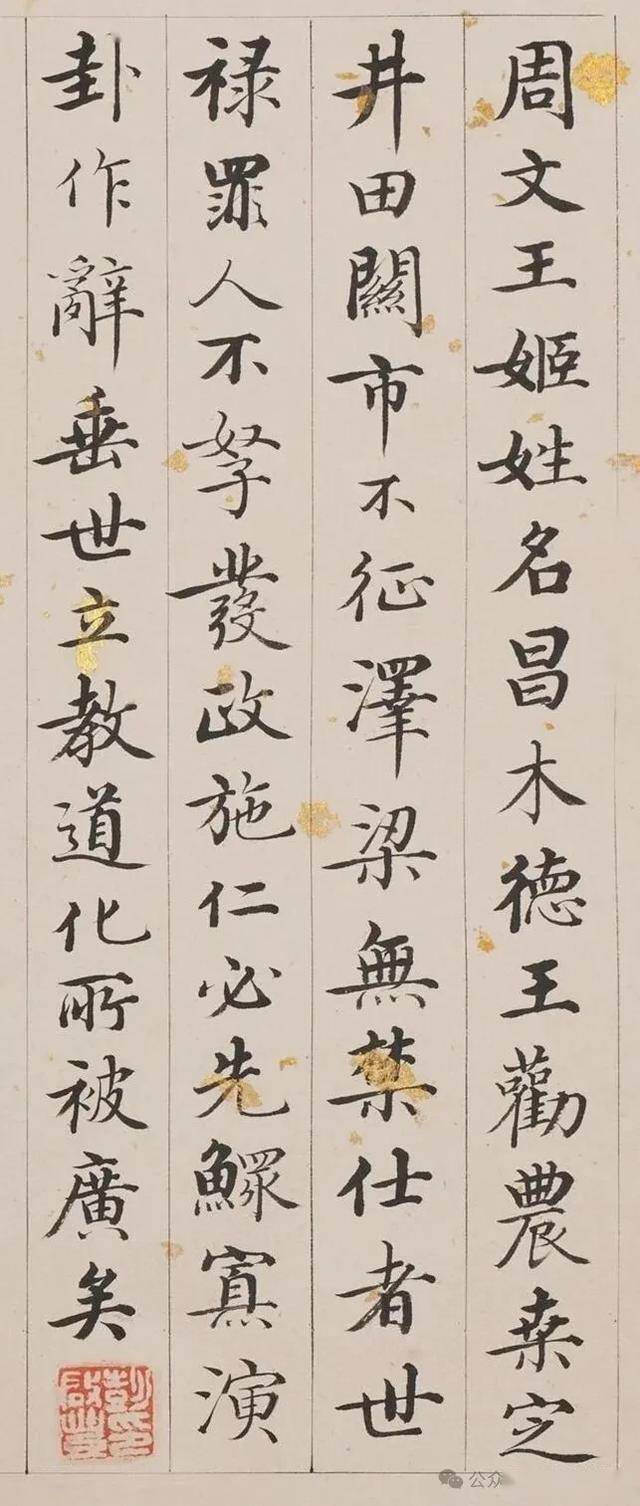 周文王姬姓名昌木德王勸農桒定
井田關市不征澤梁無禁仕者世
禄罪人不孥發政施仁必先鰥寡演
卦作辭垂世立教道化所被廣矣
彭啟豐印
公众